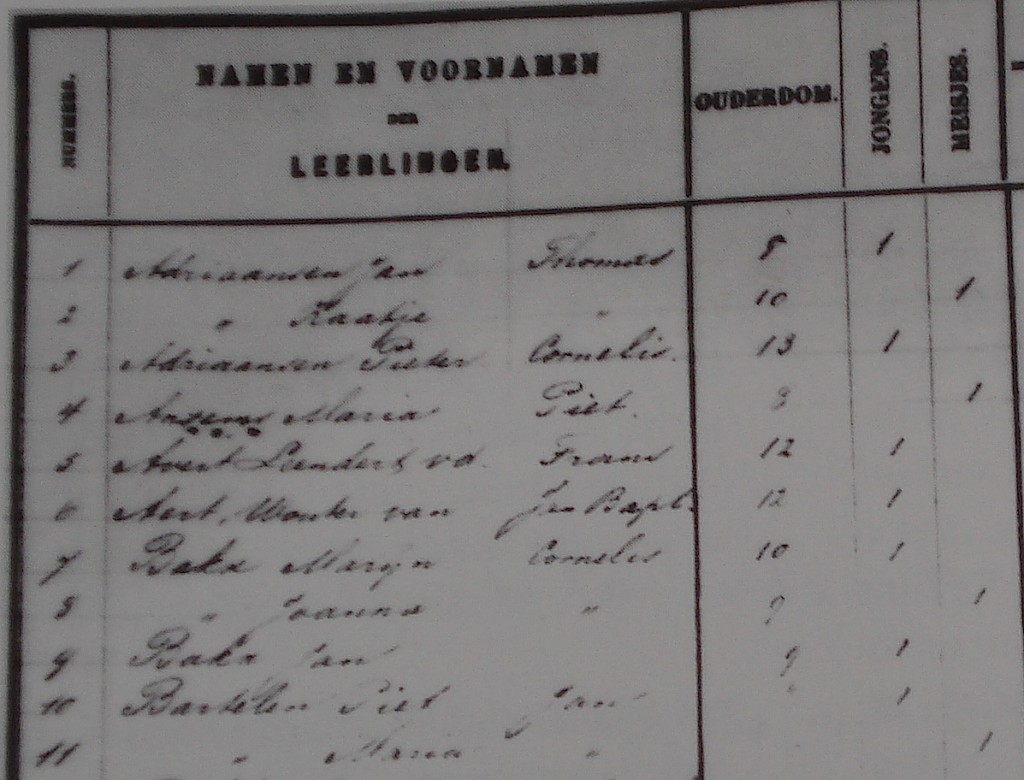 NUMMERS.
NAMEN EN VOORNAMEN
DER
LEERLINGEN.
OUDERDOM.
JONGENS.
MEISJES.
1 Adriaansen Jan Thomas 8 1
2 " Kaatje " 10 1
3 Adriaansen Pieter Cornelis. 13 1
4 Anzems Maria Piet. 1
5 Avert Leendert vd. Frans 12 1
6 Aert, Wouter van Jan Bapt. 12 1
7 Bakx Marijn Cornelis 10 1
8 " Joanna " 9 1
9 Bakx Jan 9 1
10 Bartelen Piet Jan " 1
11 " Maria " 1